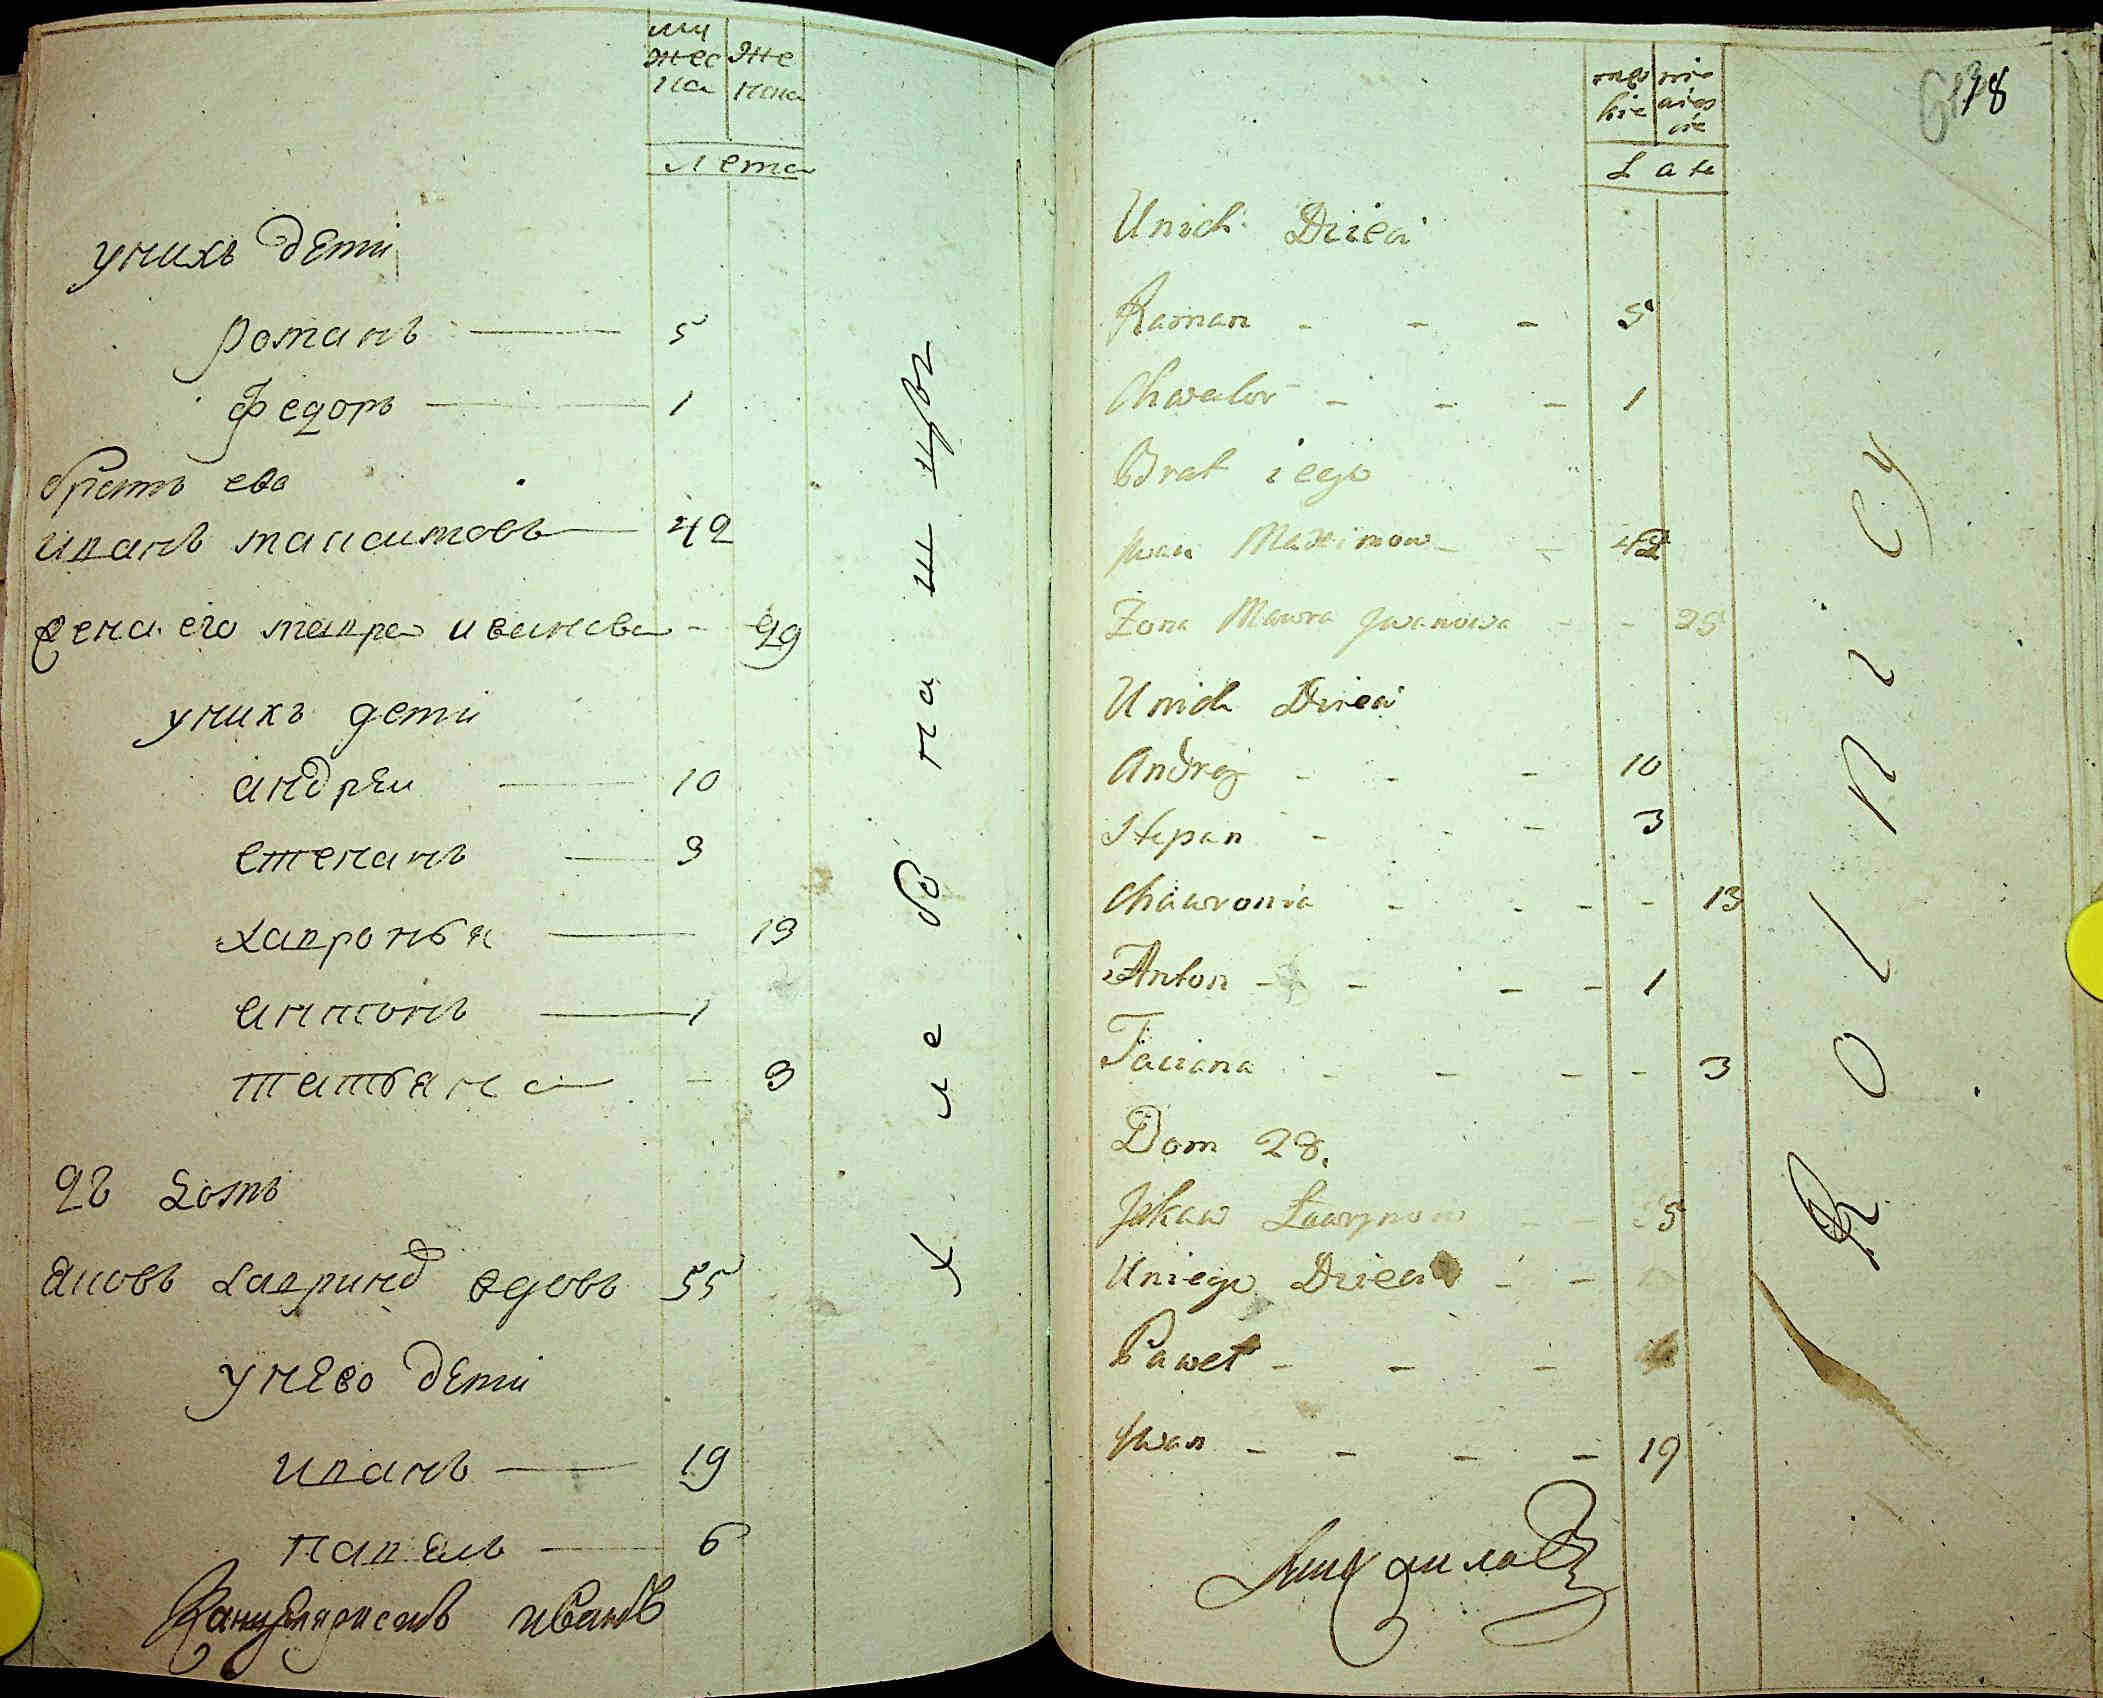 му
жес
ка
же
нска
лета
унихъ дети
романъ 5
федоръ 1
братъ ево
иванъ максимовъ 42
жена его мавра иванова 29
унихъ дети
андрей 10
степанъ 3
хавронья 13
антонъ 1
татьяна 3
28 домъ
яковъ лавринов вдовъ 55
унево дети
иванъ 19
павелъ 6
иванъ
хлебнаш
18
męs
kie
Lata
Unich Dzieci
Raman 5
Chwedor 1
Brat iego
Jwan Maximow 42
Zona Mawra Jwanowa 25
Unich Dzieci
Andrey 10
Stepan 3
Chawronia 13
Anton 1
Taciana 3
Dom 28.
Jakow Ławrynow 55
Uniego Dzieci
Paweł
Jwan 19
Rolnicy